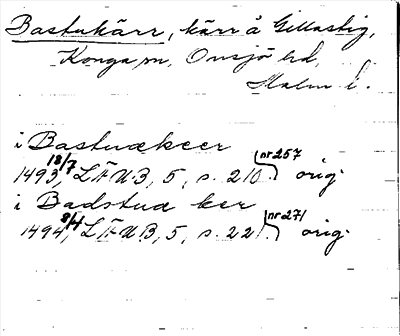 Bastukärr, kärr å Gillastig,
Konga sn, Onsjö hd,
Malm l.
i Bastuækeer
1493 18/7, LÄUB, 5, s. 210. nr 257 orig.
i Badstuæ ker
1494 8/4, LÄUB, 5, s. 221. nr 271 orig.